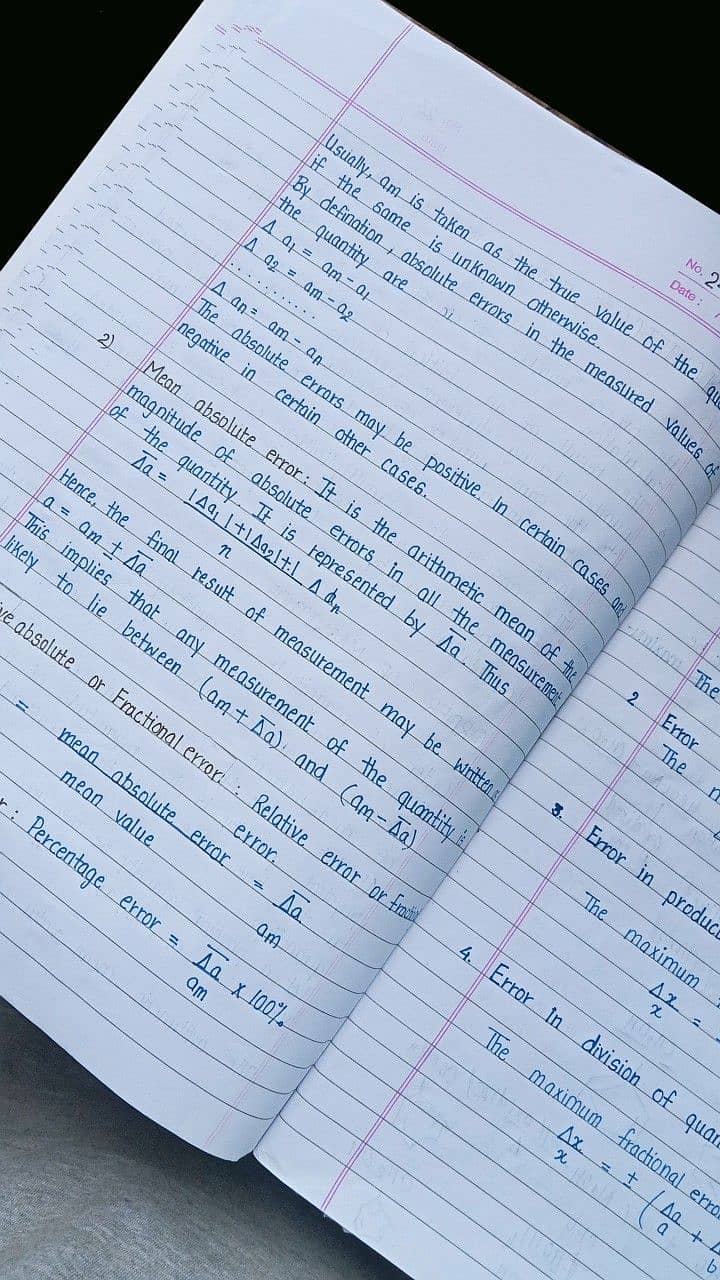 No. 2
Date :
Usually, am is taken as the true value of the
if the same is unknown otherwise.
By defination, absolute errors in the measured values of
the quantity are
Δ a1 = am - a1
Δ a2 = am - a2
............
Δ an = am - an
The absolute errors may be positive in certain cases and
negative in certain other cases.
2) Mean absolute error: It is the arithmetic mean of the
magnitude of absolute errors in all the measurement
of the quantity. It is represented by Δ̅a. Thus
Δ̅a = |Δa1|+|Δa2|+| Δ an
n
Hence, the final result of measurement may be written
a = am ± Δ̅a
This implies that any measurement of the quantity is
likely to lie between (am + Δ̅a) and (am - Δ̅a)
absolute or Fractional error : Relative error or
error.
= mean absolute error = Δ̅a
mean value am
: Percentage error = Δ̅a x 100%
am
The
2 Error
The
3. Error in
The maximum
Δx =
x
4. Error in division of
The maximum fractional
Δx = ± (Δa +
x a b